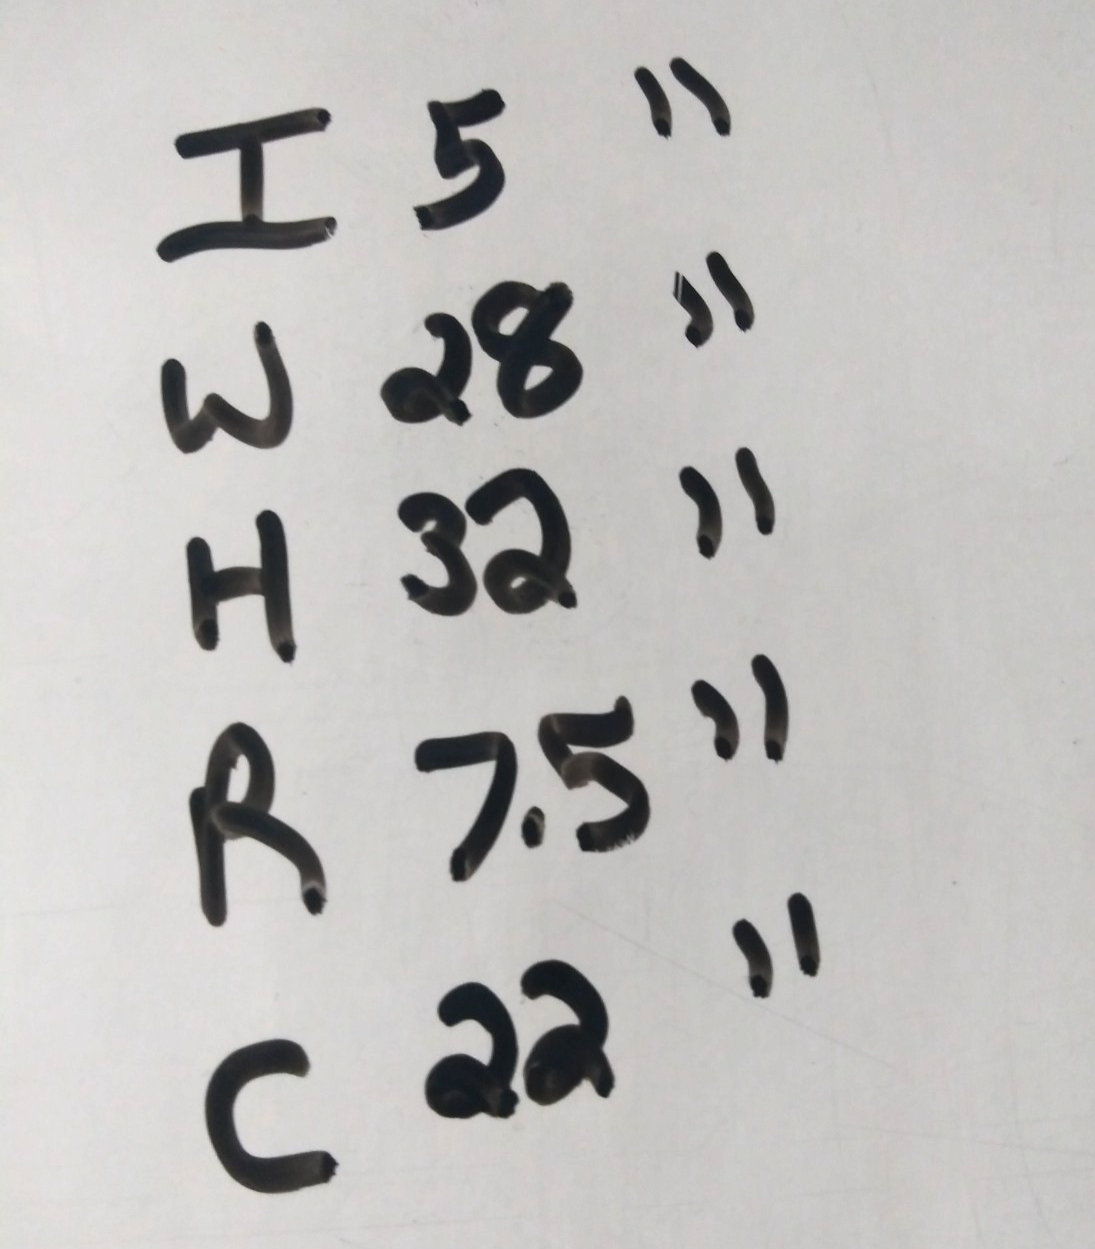 I 5 "
W 28 "
H 32 "
R 7.5 "
C 22 "